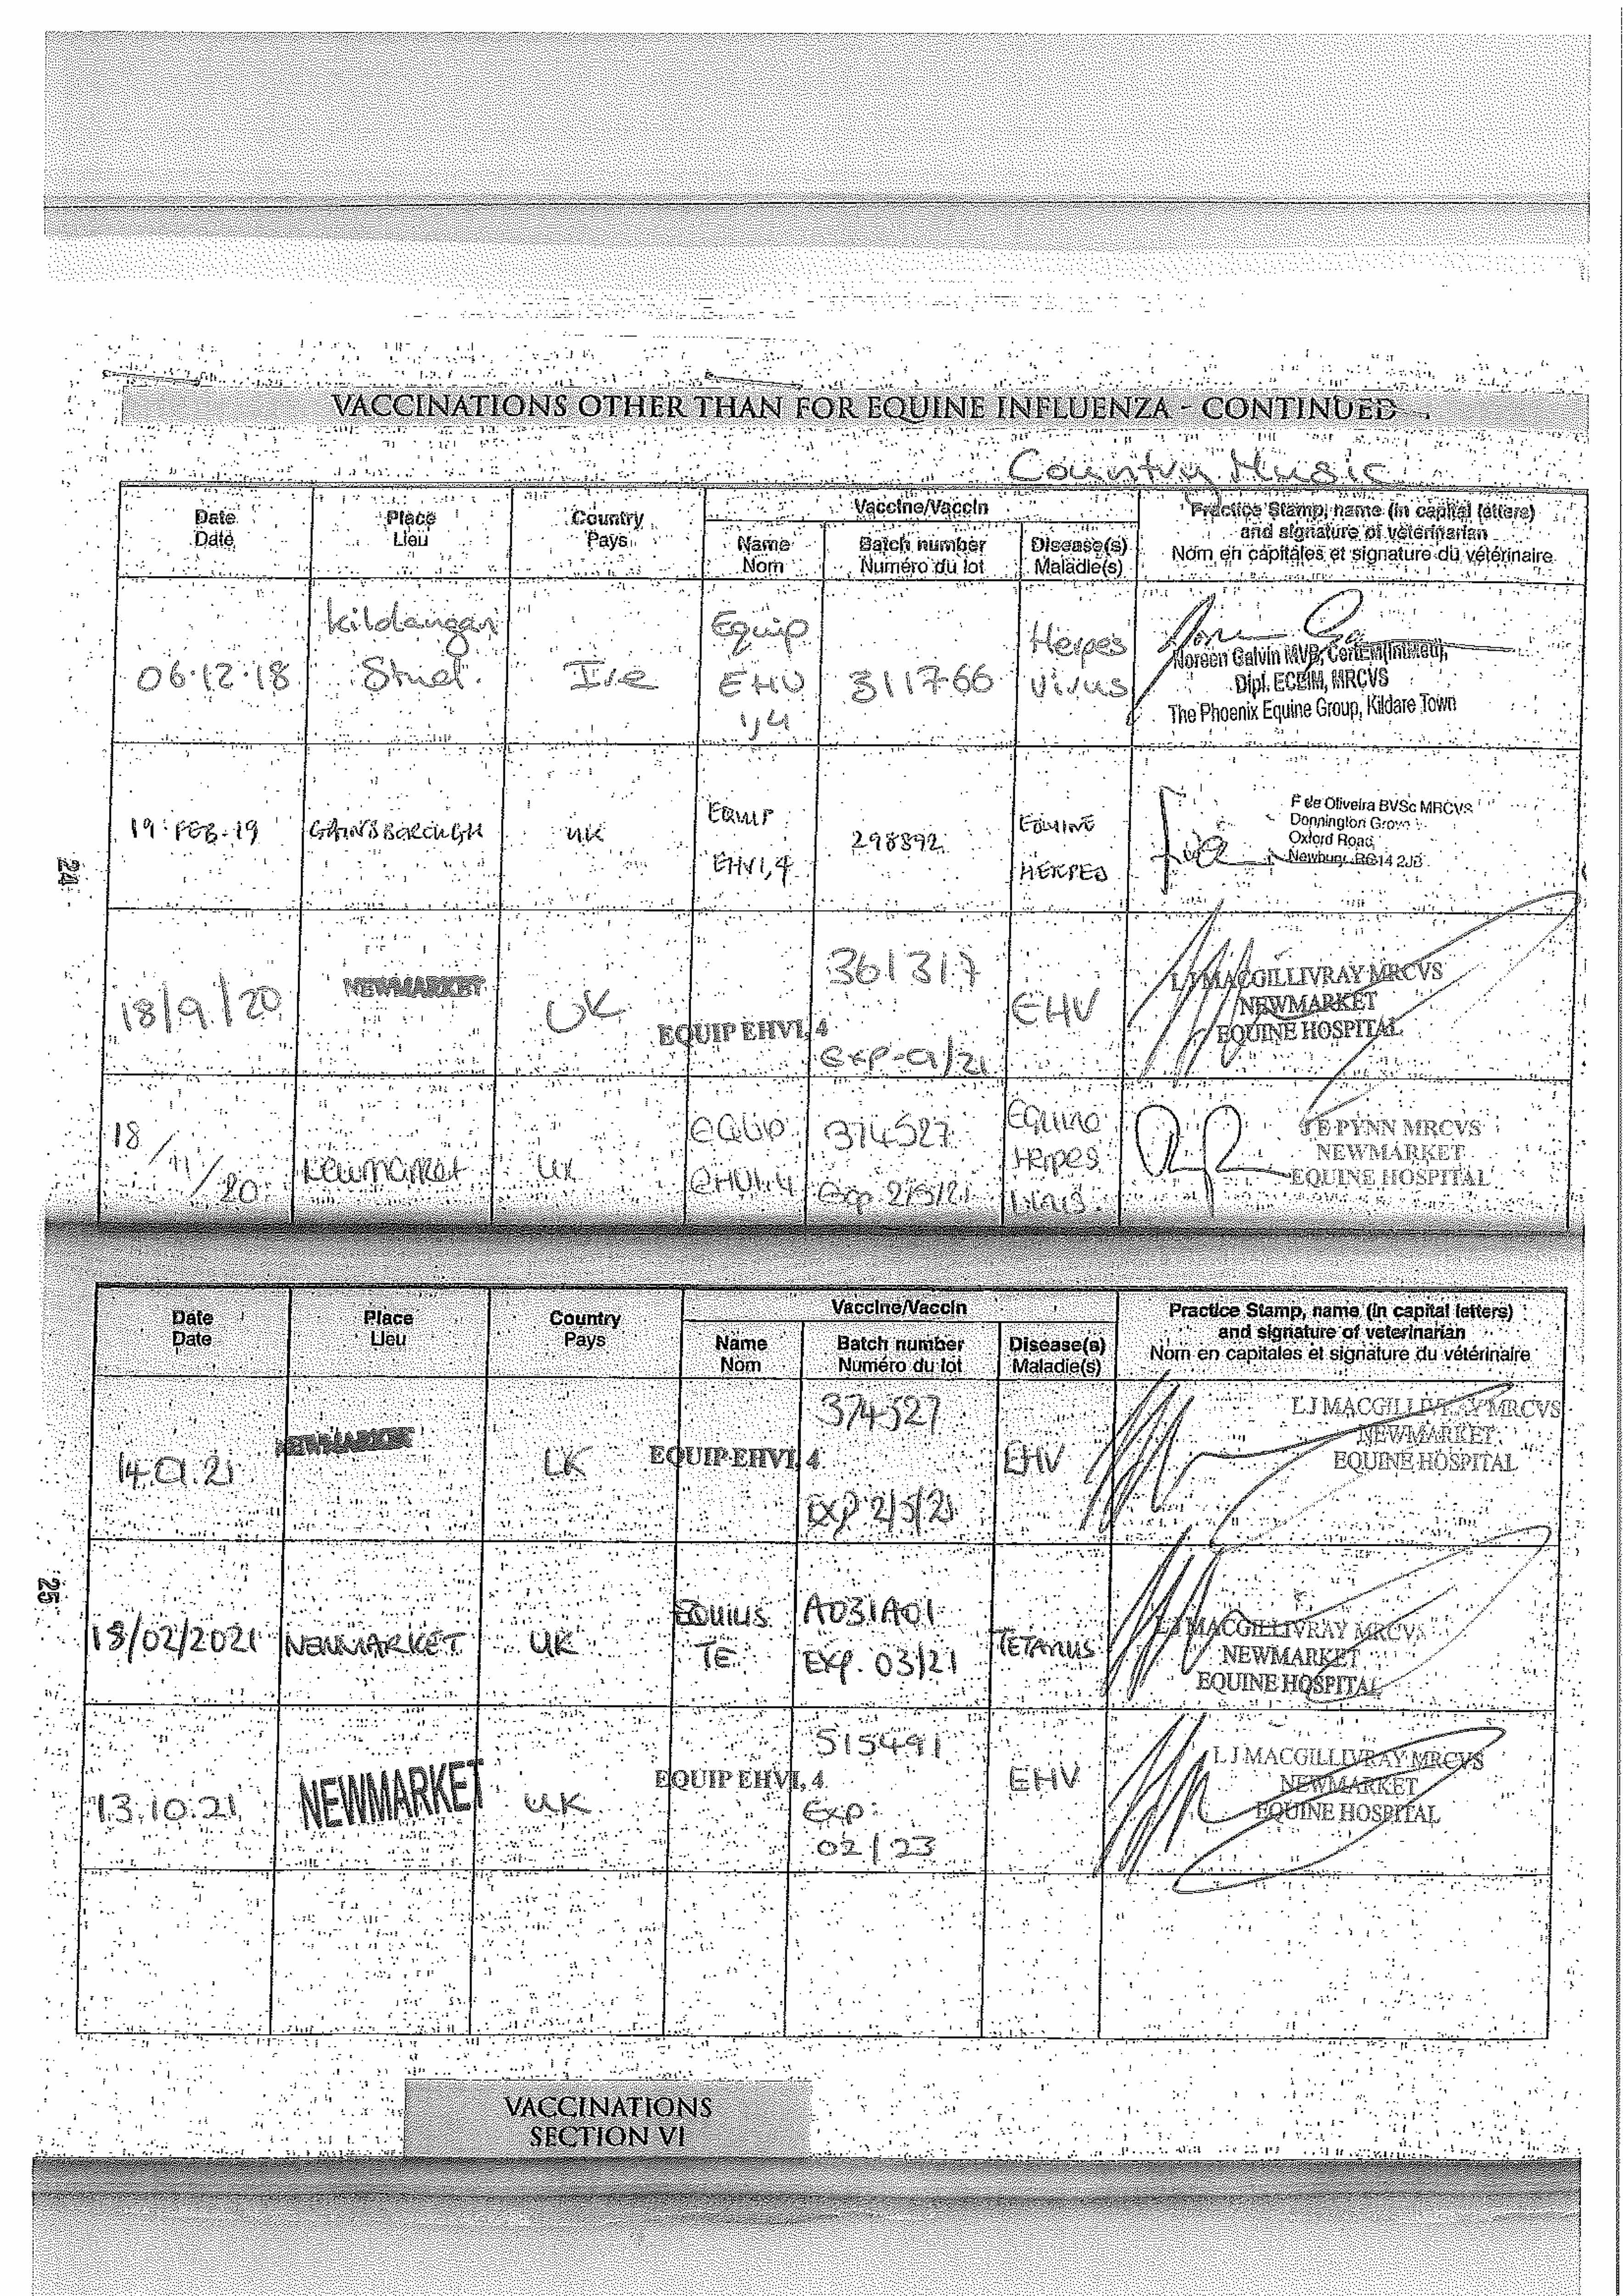 VACCINATIONS OTHER THAN FOR EQUINE INFLUENZA - CONTINUED
Country Music
Date
Date
Place
Lieu
Country
Pays
Vaccine/Vaccin
Name
Nom
Batch number
Numéro du lot
Disease(s)
Maladie(s)
Practice Stamp, name (in capital letters)
and signature of veterinarian
Nom en capitales et signature du vétérinaire
06.12.18
Kildangan
Stud.
Ire
Equip
EHV
1,4
311766
Herpes
Virus
Noreen Galvin MVB, CertEM(IntMed),
Dipl. ECEIM, MRCVS
The Phoenix Equine Group, Kildare Town
19.FEB.19
GAINSBOROUGH
UK
EQUIP
EHV1,4
298892
EQUINE
HERPES
F de Oliveira BVSc MRCVS
Donnington Grove
Oxford Road
Newbury RG14 2JB
24
18/9/20
NEWMARKET
UK
EQUIP EHV1, 4
361317
Exp-01/21
EHV
L J MACGILLIVRAY MRCVS
NEWMARKET
EQUINE HOSPITAL
18/11/20
Newmarket
UK
EQUIP
EHV1.4
374527
Exp 2/5/21
Equine
Herpes
Virus.
J E PYNN MRCVS
NEWMARKET
EQUINE HOSPITAL
Date
Date
Place
Lieu
Country
Pays
Vaccine/Vaccin
Name
Nom
Batch number
Numéro du lot
Disease(s)
Maladie(s)
Practice Stamp, name (in capital letters)
and signature of veterinarian
Nom en capitales et signature du vétérinaire
14.01.21
NEWMARKET
UK
EQUIP EHV1, 4
374527
EXP 2/5/21
EHV
L J MACGILLIVRAY MRCVS
NEWMARKET
EQUINE HOSPITAL
25
18/02/2021
NEWMARKET
UK
EQUIUS
TE
A031A01
EXP. 03/21
TETANUS
L J MACGILLIVRAY MRCVS
NEWMARKET
EQUINE HOSPITAL
13.10.21
NEWMARKET
UK
EQUIP EHV1, 4
515491
Exp:
02/23
EHV
L J MACGILLIVRAY MRCVS
NEWMARKET
EQUINE HOSPITAL
VACCINATIONS
SECTION VI